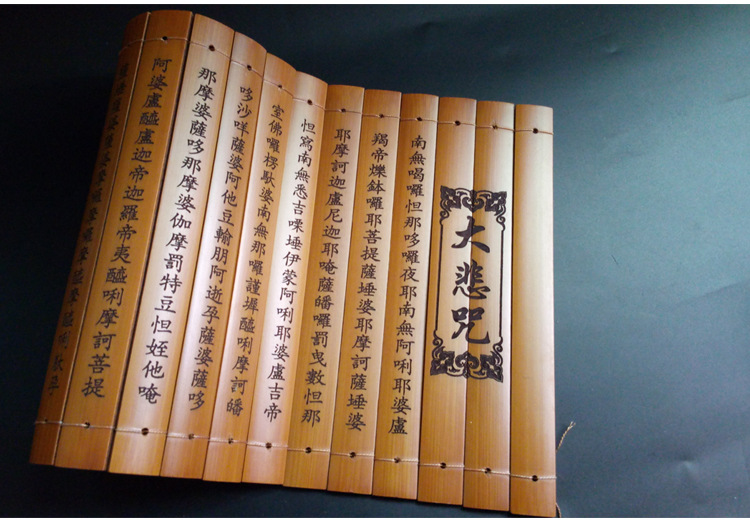 大悲咒
南無喝囉怛那哆囉夜耶南無阿唎耶婆盧
羯帝爍鉢囉耶菩提薩埵婆耶摩訶薩埵婆
耶摩訶迦盧尼迦耶唵薩皤囉罰曳數怛那
怛寫南無悉吉㗚埵伊蒙阿唎耶婆盧吉帝
室佛囉楞馱婆南無那囉謹墀醯唎摩訶皤
哆沙咩薩婆阿他豆輸朋阿逝孕薩婆薩哆
那摩婆薩哆那摩婆伽摩罰特豆怛姪他唵
阿婆盧醯盧迦帝迦羅帝夷醯唎摩訶菩提
薩婆摩囉摩囉摩醯摩醯唎馱孕